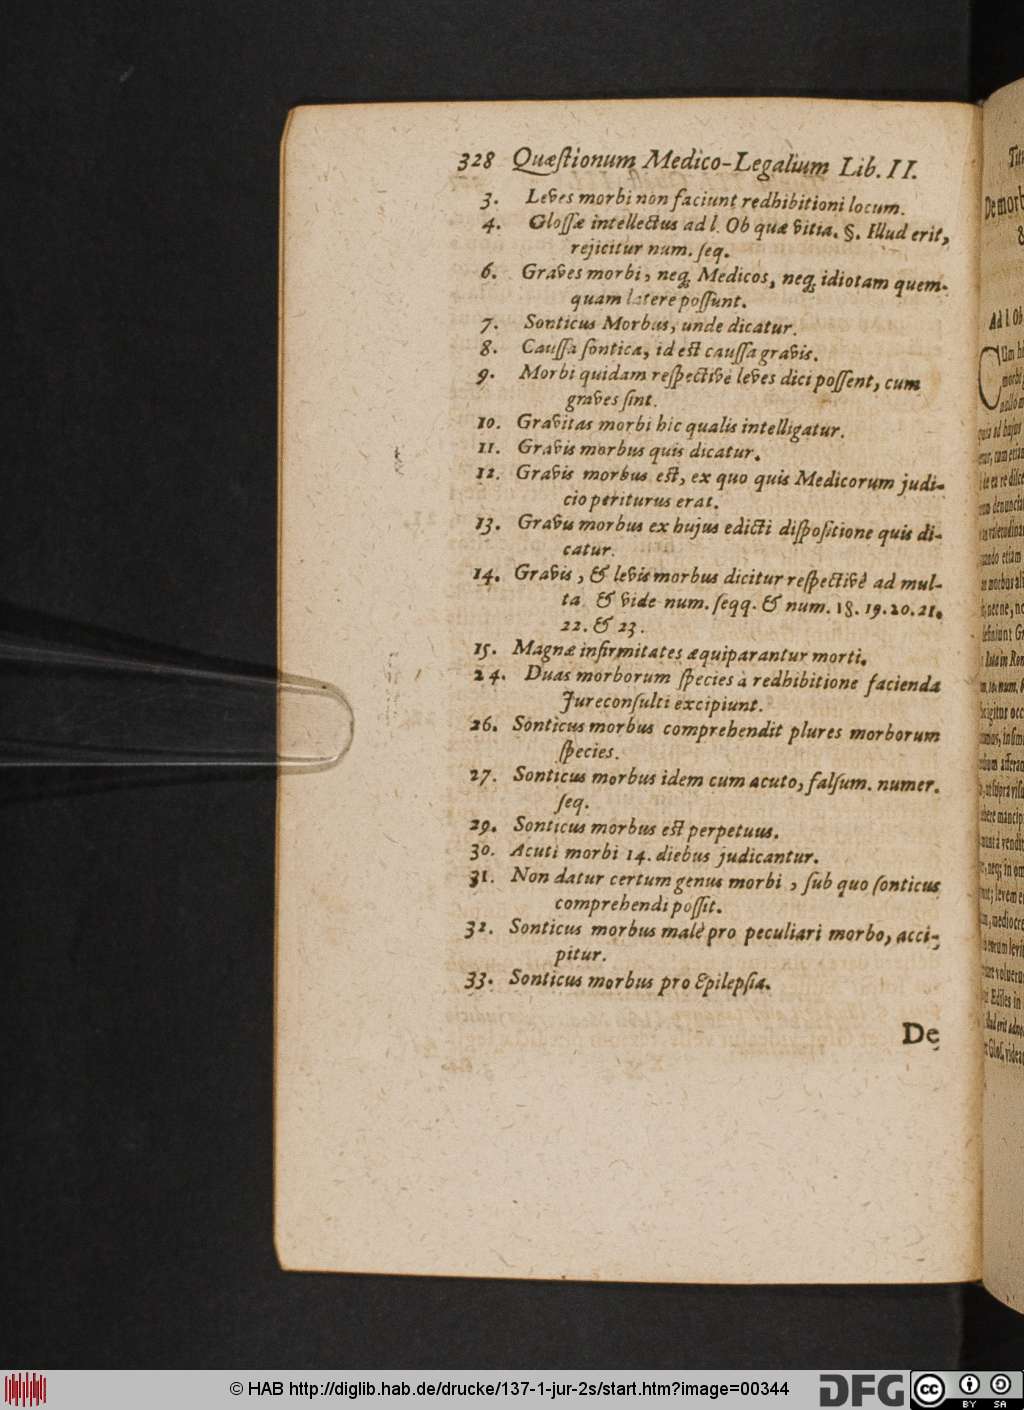 328 Quæſtionum Medico-Legalium Lib. II.
3. Leves morbi non faciunt redhibitioni locum.
4. Gloſſæ intellectus ad l. Ob quæ vitia. §. Illud erit,
rejicitur num. ſeq.
6. Graves morbi, neq; Medicos, neq; idiotam quem-
quam latere poſſunt.
7. Sonticus Morbus, unde dicatur.
8. Cauſſa ſontica, id est cauſſa gravis.
9. Morbi quidam reſpectivè leves dici poſſent, cum
graves ſint.
10. Gravitas morbi hic qualis intelligatur.
11. Gravis morbus quis dicatur.
12. Gravis morbus est, ex quo quis Medicorum judi-
cio periturus erat.
13. Gravis morbus ex hujus edicti diſpoſitione quis di-
catur.
14. Gravis, & levis morbus dicitur reſpectivè ad mul-
ta & vide num. ſeqq. & num. 18. 19. 20. 21.
22. & 23.
15. Magnæ infirmitates æquiparantur morti.
24. Duas morborum ſpecies à redhibitione facienda
Jureconſulti excipiunt.
26. Sonticus morbus comprehendit plures morborum
ſpecies.
27. Sonticus morbus idem cum acuto, falſum. numer.
ſeq.
29. Sonticus morbus est perpetuus.
30. Acuti morbi 14. diebus judicantur.
31. Non datur certum genus morbi, ſub quo ſonticus
comprehendi poſſit.
32. Sonticus morbus malè pro peculiari morbo, acci-
pitur.
33. Sonticus morbus pro Epilepſia.
De
De morb
Ad l. Ob
© HAB http://diglib.hab.de/drucke/137-1-jur-2s/start.htm?image=00344
DFG
cc
BY SA